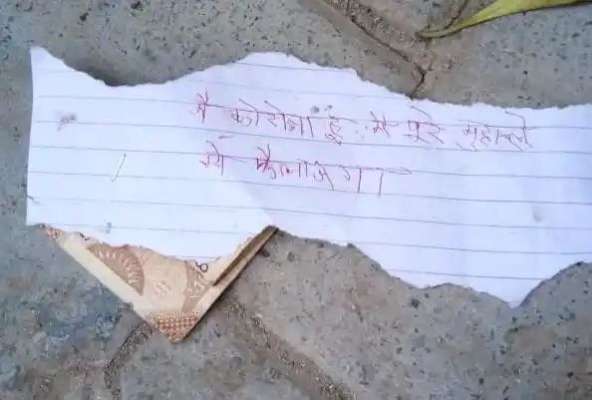 मै कोरोना हूं मै पुरे मुहल्ले
मे फैलाउगा